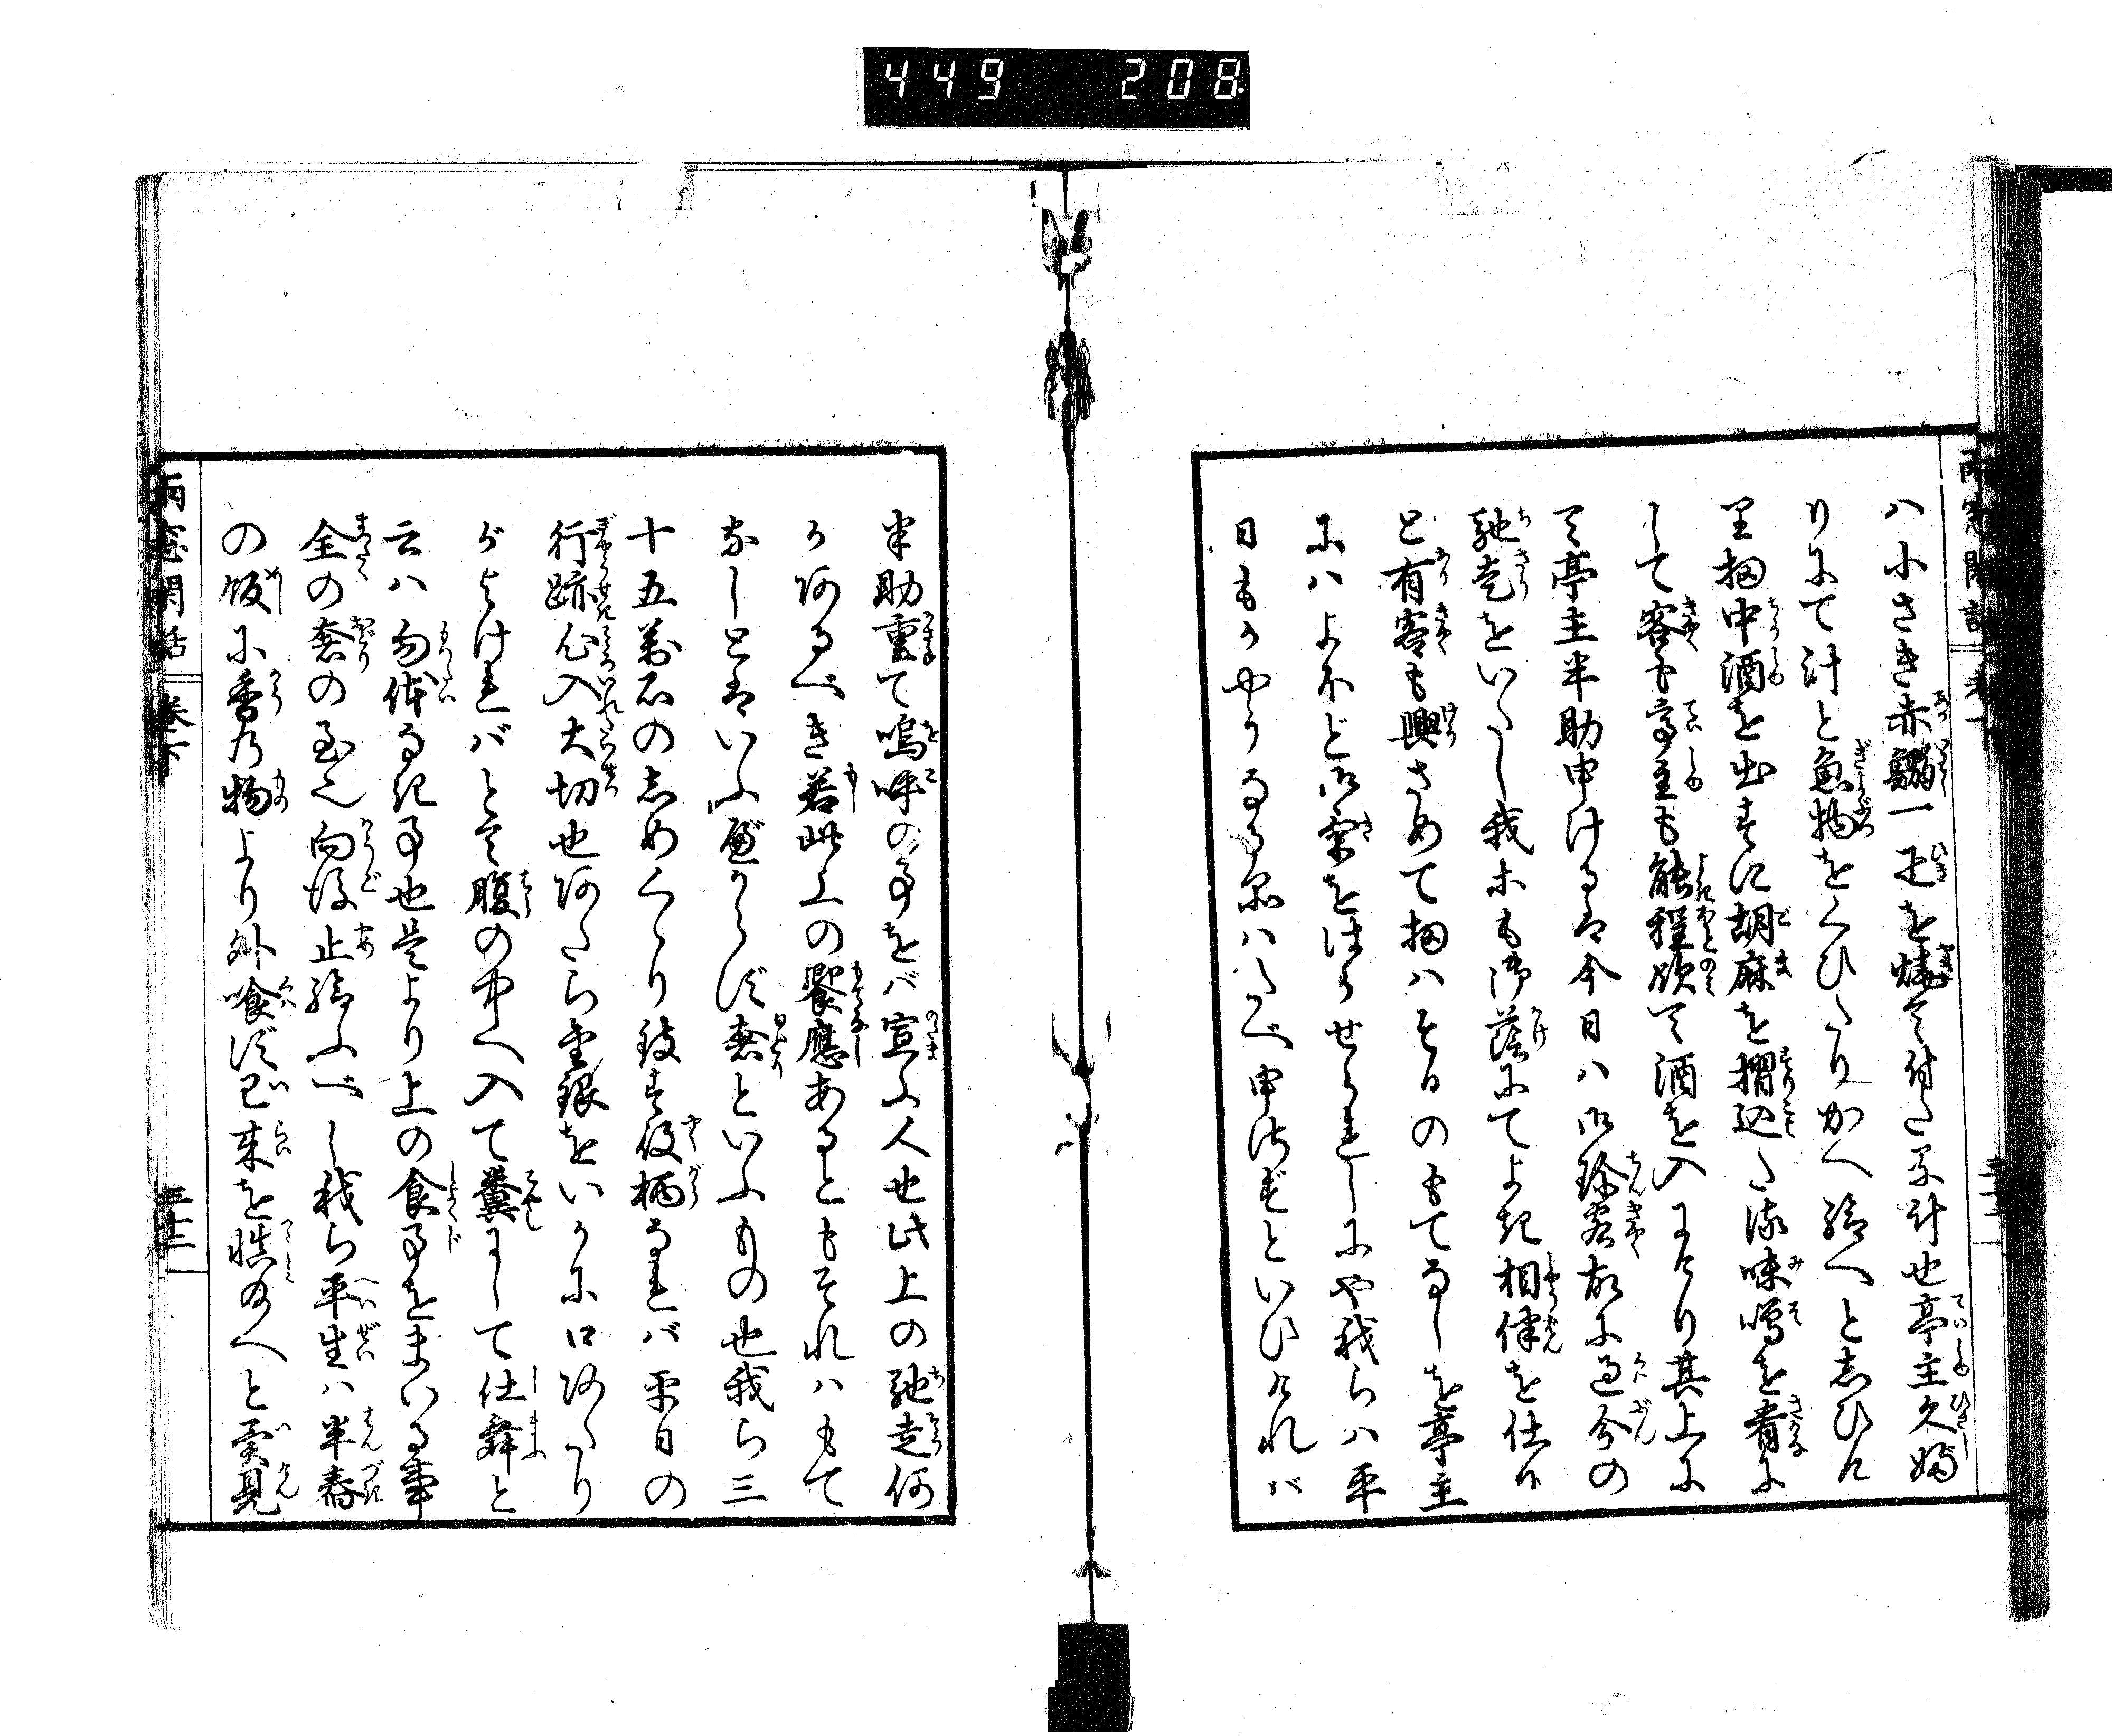 449 208
ハ小さき赤鰯一疋を焼て付たる計也亭主久婦
りにて汁と魚物をくひたりかへ給へと志ひけ
里扨中酒を出すに胡麻を摺込た味噌を肴に
して客も亭主も能程飲て酒を入にけり其上に
て亭主半助申けるは今日ハ御珍客故に過分の
馳走をいたし我等も御蔭にてよき相伴を仕り
と有客も興さめて扨ハ今日のもてなしを亭主
にハよほど御気をはらせられしにや我らハ平
日もかやうなる品ハたべ申さずといひけれバ
半助重て嗚呼の事をバ宣ふ人也此上の馳走何
か有るべき若此上の饗應あるともそれハもて
なしとはいふべからず奢といふもの也我ら三
十五萬石の志めくゝり致す役柄なれバ平日の
行跡心入大切也あたら金銀をいかに口あたり
がよけれバとて腹の中へ入て糞にして仕舞と
云ハ勿体なき事也是より上の食事をまいる事
全の奢の至也向後止給ふべし我ら平生ハ半舂
の飯に香の物より外喰ず已来を慎給へと異見
雨窓閑話 巻下